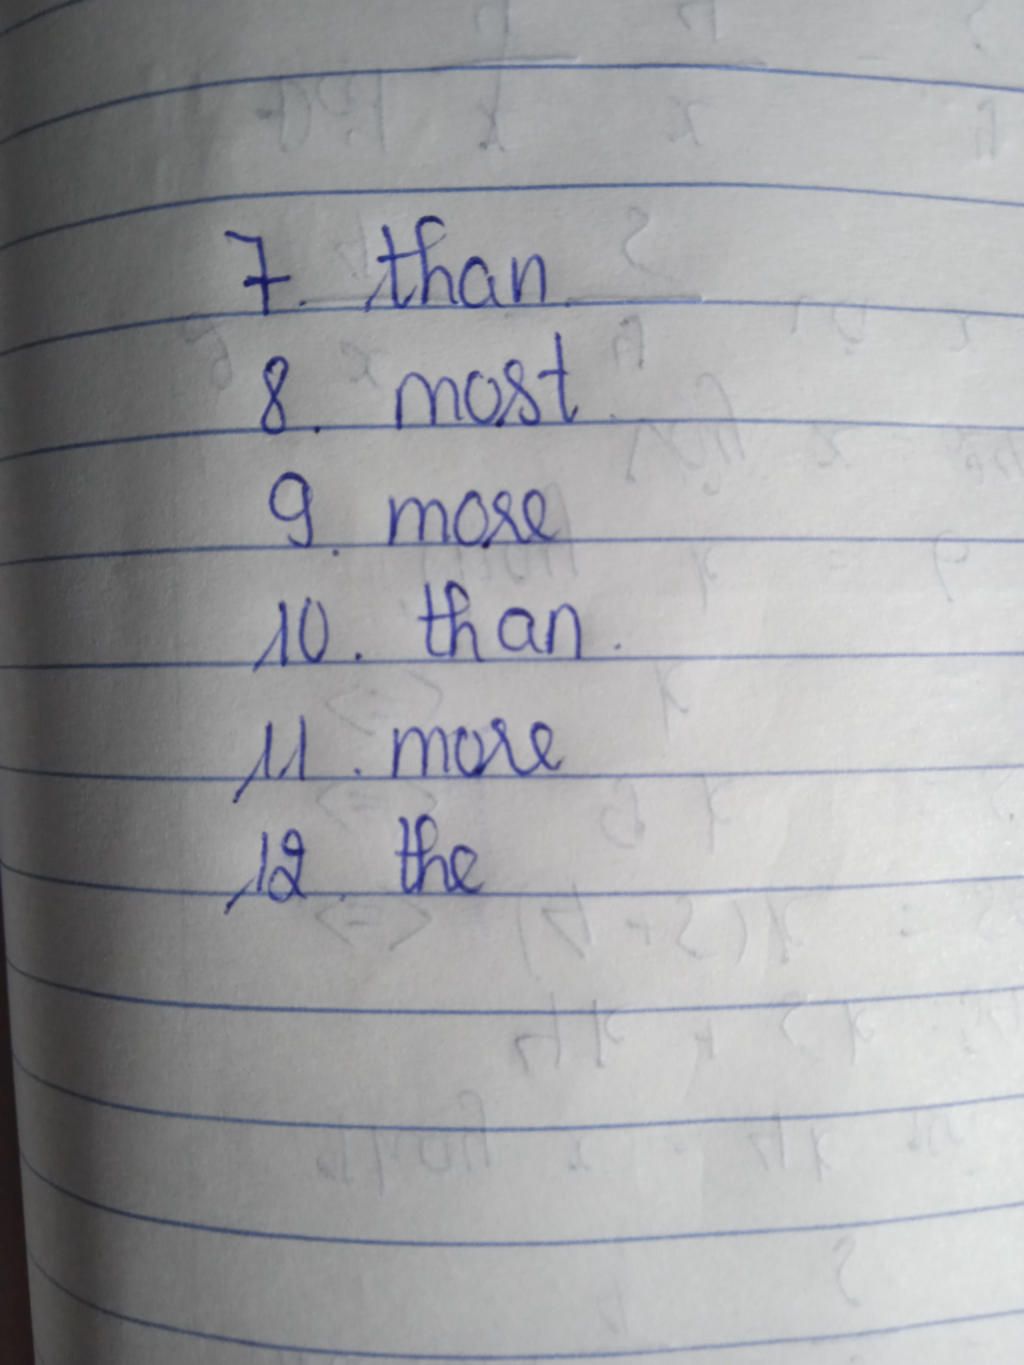 7. than
8. most
9. more
10. than.
11. more
12. the